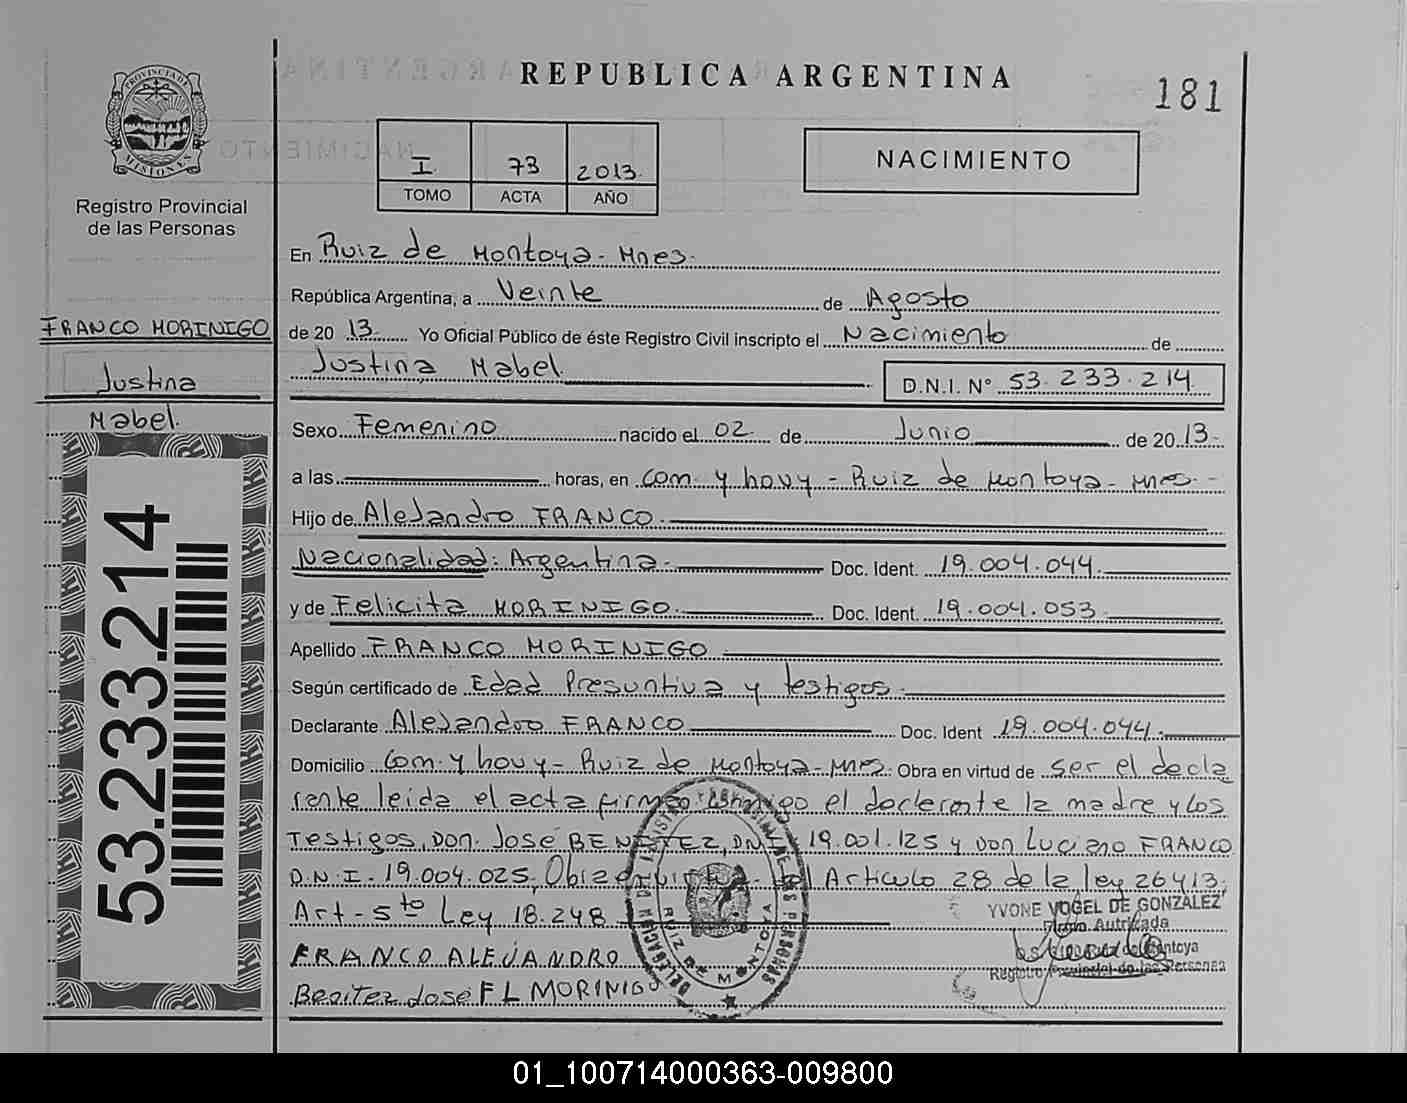 REPUBLICA ARGENTINA
181
PROVINCIA DE MISIONES
Registro Provincial
de las Personas
I 73 2013
TOMO ACTA AÑO
NACIMIENTO
FRANCO MORINIGO
Justina
Mabel.
53.233.214
En Ruiz de Montoya - Mnes.
República Argentina, a Veinte de Agosto
de 20 13. Yo Oficial Público de éste Registro Civil inscripto el Nacimiento de
Justina Mabel. D.N.I. N° 53.233.214
Sexo Femenino nacido el 02 de Junio de 20 13.
a las horas, en Com. y hovy - Ruiz de Montoya - Mnes. -
Hijo de Alejandro FRANCO.
Nacionalidad: Argentina. Doc. Ident. 19.004.044.
y de Felicita MORINIGO. Doc. Ident. 19.004.053
Apellido FRANCO MORINIGO.
Según certificado de Edad Presuntiva y testigos.
Declarante Alejandro FRANCO Doc. Ident 19.004.044.
Domicilio Com. y hovy - Ruiz de Montoya - Mnes. Obra en virtud de ser el decla
rante leida el acta firman conmigo el declarante la madre y los
Testigos, Don. José BENITEZ, DNI 19.001.125 y Don Luciano FRANCO
D.N.I. 19.004.025, Articulo 28 de la ley 26413,
Art - 5to Ley 18.248
YVONE VOGEL DE GONZALEZ
Firma Autorizada
Ruiz de Montoya
Registro Provincial de las Personas
FRANCO ALEJANDRO
Benitez José F L MORINIGO
DELEGACION REGISTRO PROVINCIAL DE LAS PERSONAS
RUIZ DE MONTOYA
01_100714000363-009800